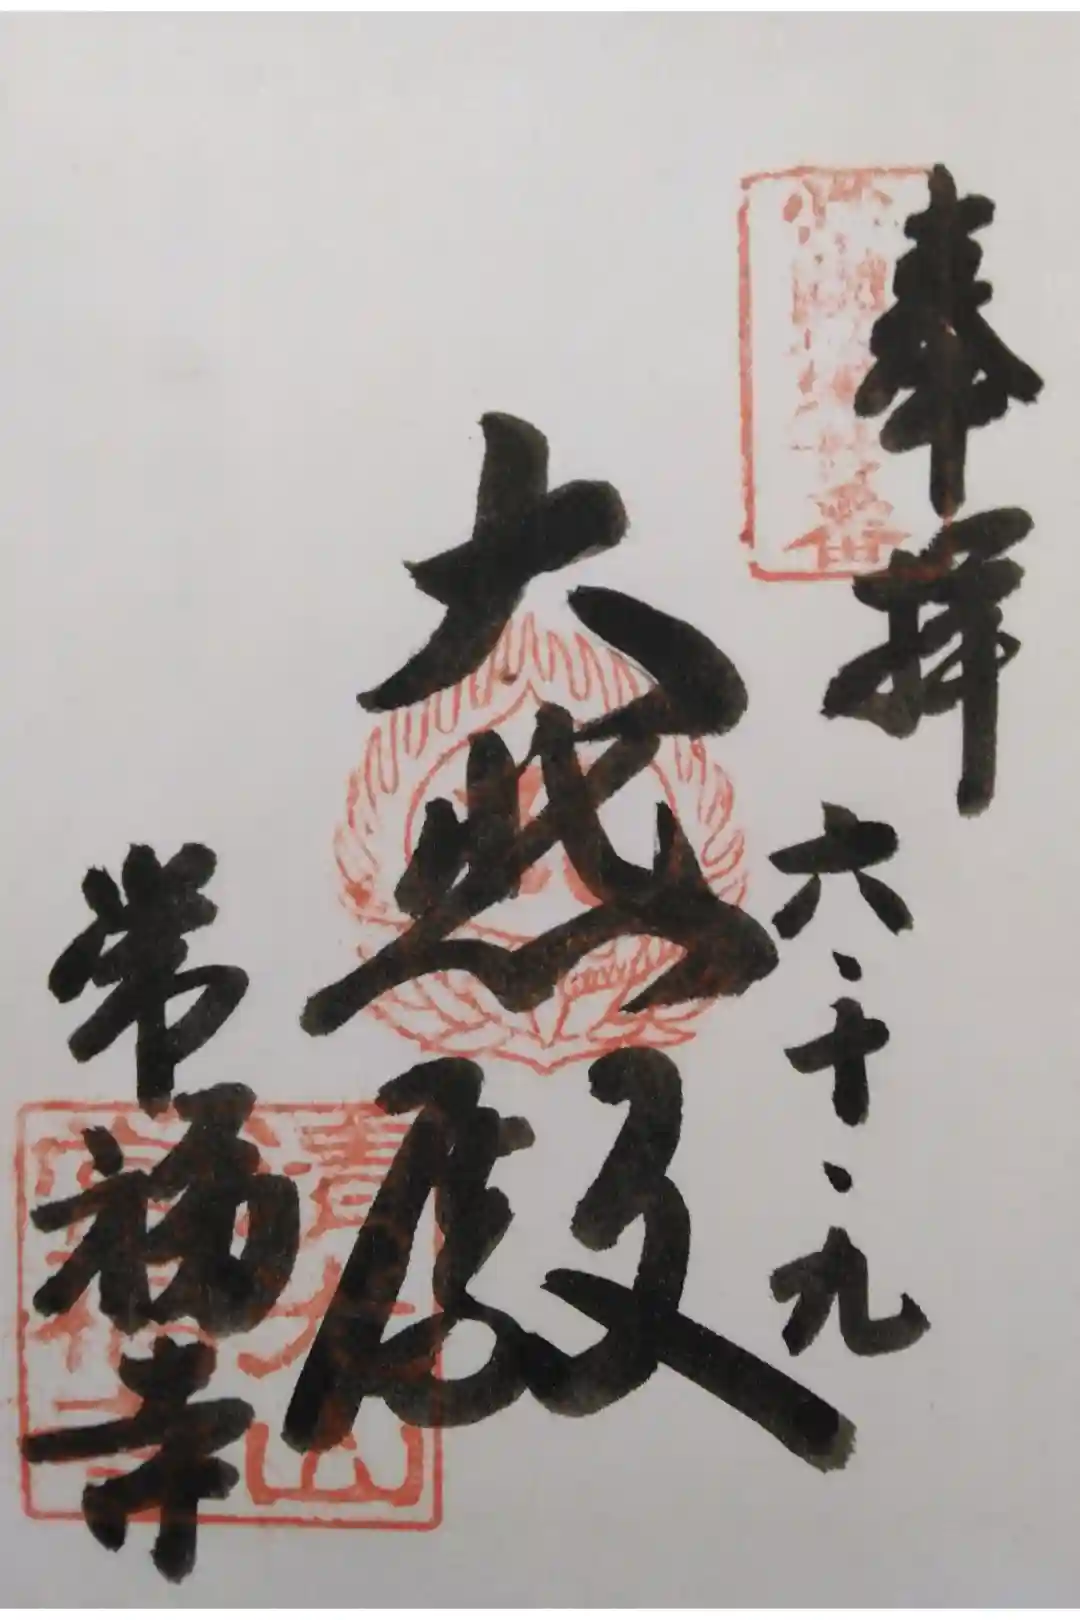 奉拝
六・十・九
大悲殿
常福寺